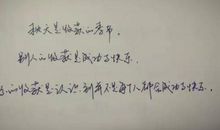 秋天是收获的季节.
别人的收获是成功与快乐.
的收获是认识到并不是每个人都会成功与快乐.